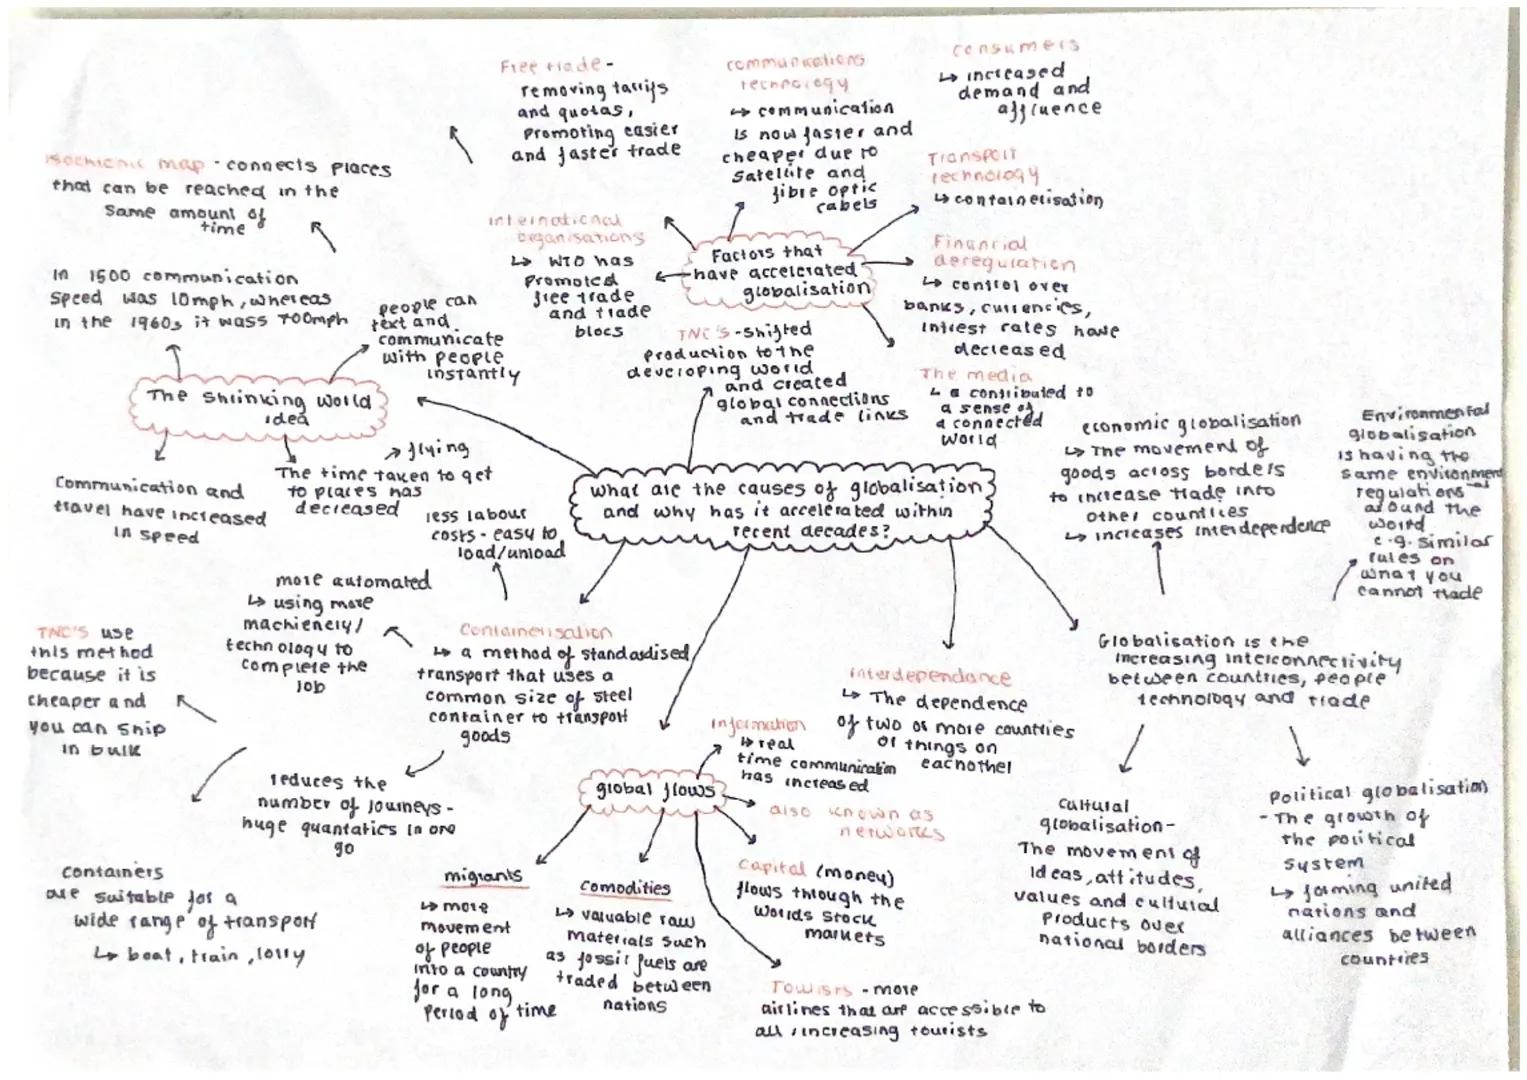 Free trade -
removing tariffs
and quotas,
promoting easier
and faster trade
communications
technology
↳ communication
is now faster and
cheaper due to
satellite and
fibre optic
cabels
consumers
↳ increased
demand and
affluence
Transport
technology
↳ containerisation
Financial
deregulation
↳ control over
banks, currencies,
intrest rates have
decreased
The media
↳ contributed to
a sense of
a connected
world
international
organisations
↳ WTO has
promoted
free trade
and trade
blocs
Factors that
have accelerated
globalisation
TNC'S - shifted
production to the
developing world
and created
global connections
and trade links
isochronic map - connects places
that can be reached in the
same amount of
time
In 1500 communication
speed was 10mph, whereas
in the 1960s it wass 700mph
people can
text and
communicate
with people
instantly
The Shrinking world
idea
Communication and
travel have increased
in speed
→ flying
The time taken to get
to places has
decreased
What are the causes of globalisation
and why has it accelerated within
recent decades?
economic globalisation
↳ The movement of
goods across borders
to increase trade into
other countries
↳ increases interdependence
Environmental
globalisation
is having the
same environmental
regulations
around the
world
e.g. similar
rules on
what you
cannot trade
less labour
costs - easy to
load/unload
more automated
↳ using more
machienery/
technology to
complete the
job
TNC'S use
this method
because it is
cheaper and
you can ship
in bulk
Containerisation
↳ a method of standardised
transport that uses a
common size of steel
container to transport
goods
reduces the
number of journeys -
huge quantaties in one
go
containers
are suitable for a
wide range of transport
↳ boat, train, lorry
interdependance
↳ The dependence
of two or more countries
or things on
eachother
Globalisation is the
increasing interconnectivity
between countries, people
technology and trade
information
↳ real
time communication
has increased
global flows
also known as
networks
migrants
↳ more
movement
of people
into a country
for a long
period of time
Comodities
↳ valuable raw
materials such
as fossil fuels are
traded between
nations
Capital (money)
flows through the
worlds stock
markets
Tourists - more
airlines that are accessible to
all, increasing tourists
Cultural
globalisation -
The movement of
ideas, attitudes,
values and cultural
products over
national borders
Political globalisation
- The growth of
the political
system
↳ forming united
nations and
alliances between
countries